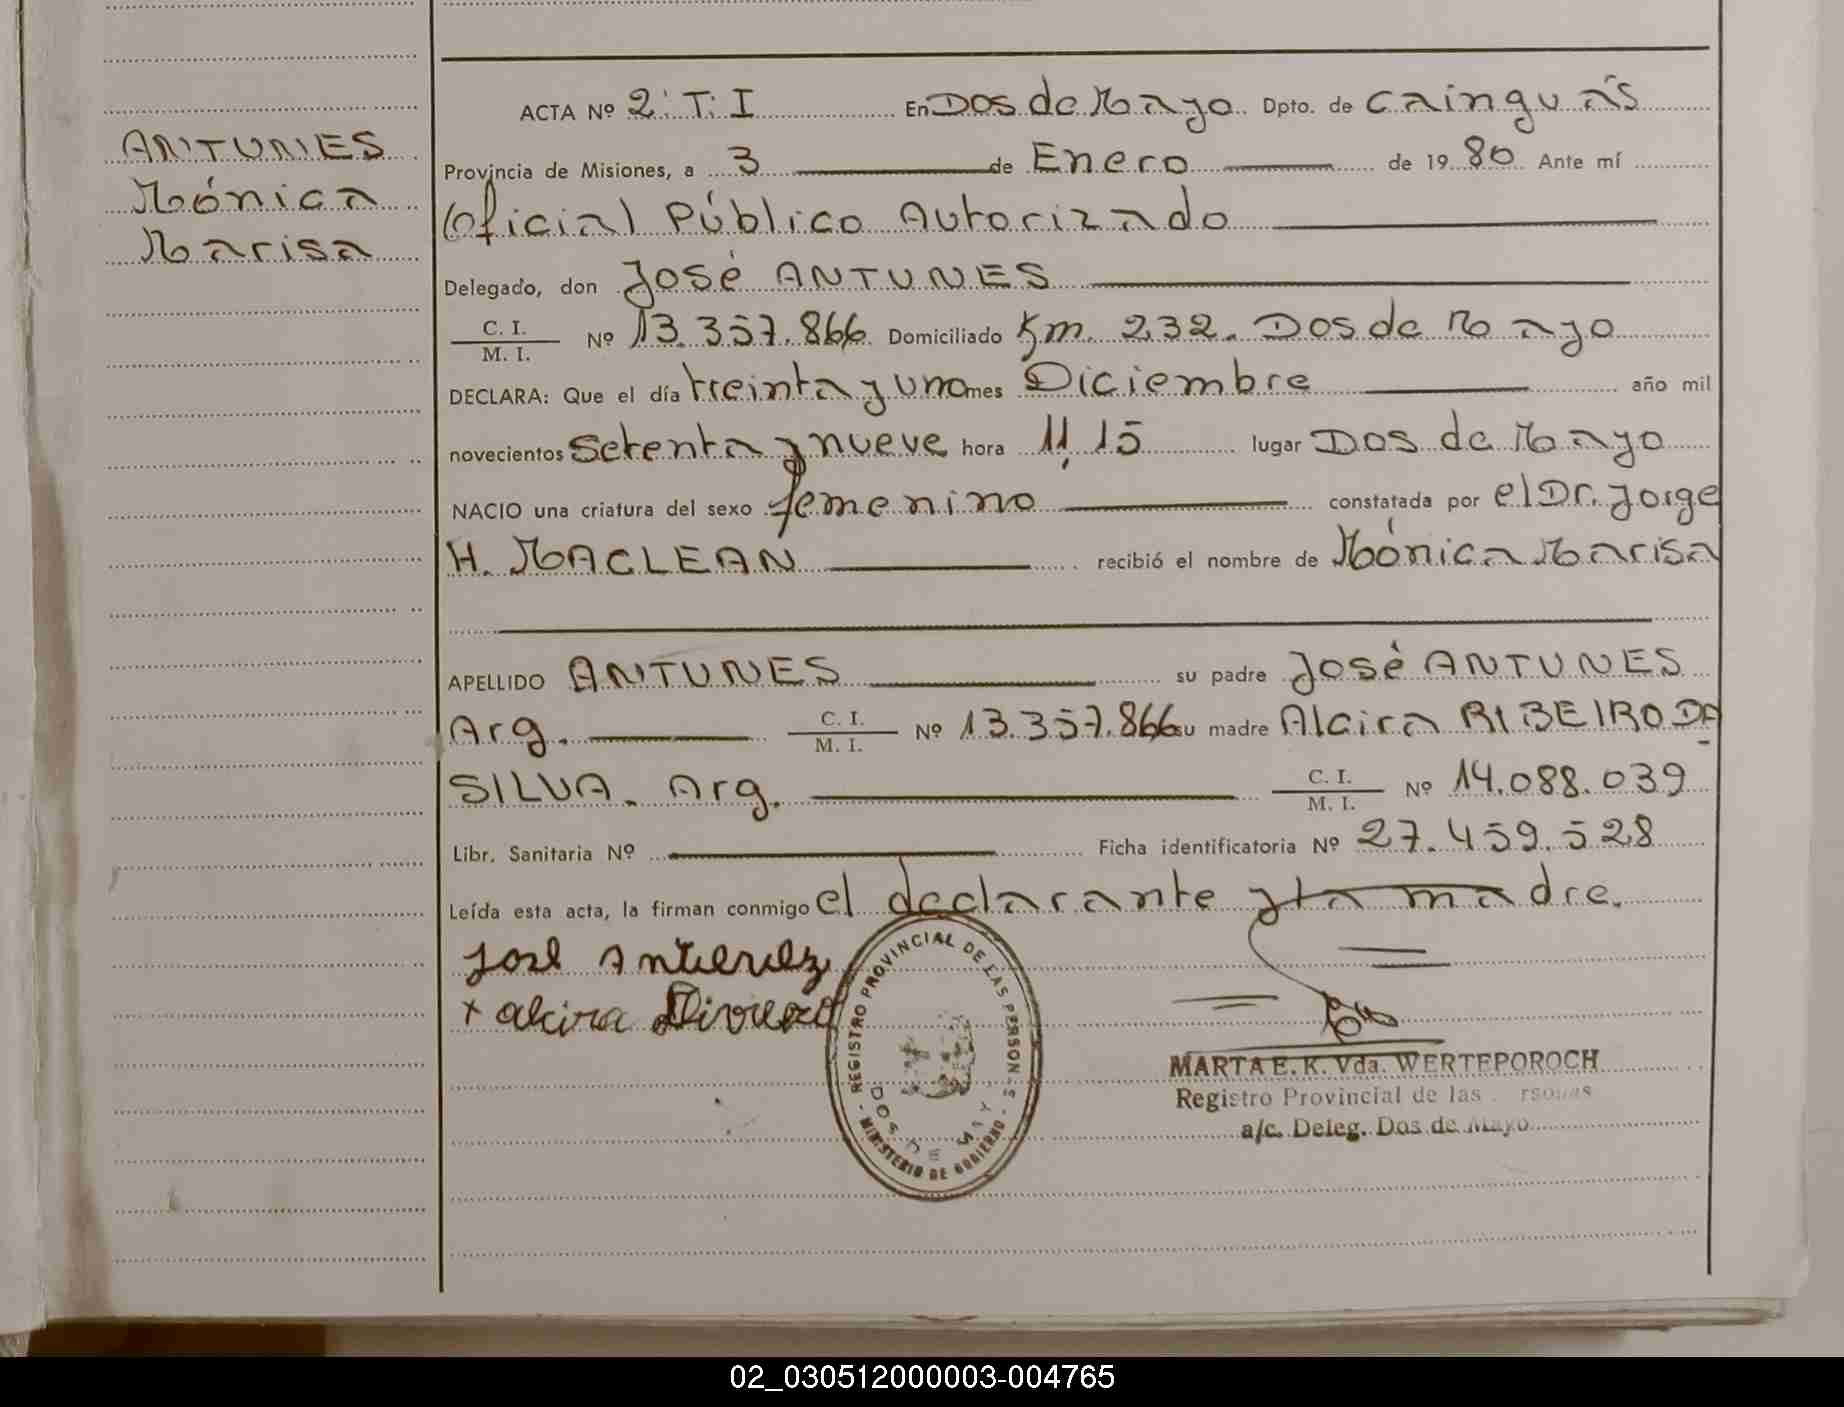 ANTUNES
Mónica
Marisa
ACTA Nº 2: T: I En Dos de Mayo Dpto. de Cainguás
Provincia de Misiones, a 3 de Enero de 1980 Ante mí
Oficial Público Autorizado
Delegado, don José ANTUNES
C. I.
M. I. Nº 13.357.866 Domiciliado Km. 232. Dos de Mayo
DECLARA: Que el día treinta y uno mes Diciembre año mil
novecientos setenta y nueve hora 11,15 lugar Dos de Mayo
NACIO una criatura del sexo femenino constatada por el Dr. Jorge
H. MACLEAN recibió el nombre de Mónica Marisa
APELLIDO ANTUNES su padre José ANTUNES
Arg. C. I.
M. I. Nº 13.357.866 su madre Alcira RIBEIRO DA
SILVA. Arg. C. I.
M. I. Nº 14.088.039
Libr. Sanitaria Nº Ficha identificatoria Nº 27.459.528
Leída esta acta, la firman conmigo el declarante y la madre.
José
x alcira
REGISTRO PROVINCIAL DE LAS PERSONAS
DOS DE MAY
- MINISTERIO DE GOBIERNO -
MARTA E. K. Vda. WERTEPOROCH
Registro Provincial de las rsonas
a/c. Deleg. Dos de Mayo
02_030512000003-004765